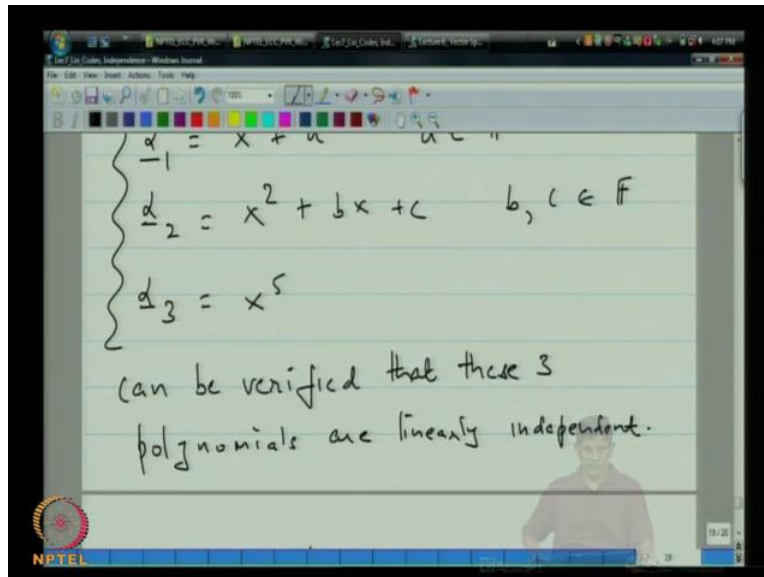 Lec7_Lin_Codes, Independence - Windows Journal
File Edit View Insert Actions Tools Help
α₁ = x + a
α₂ = x² + bx + c b, c ∈ F
α₃ = x⁵
can be verified that these 3
polynomials are linearly independent.
19/20
NPTEL